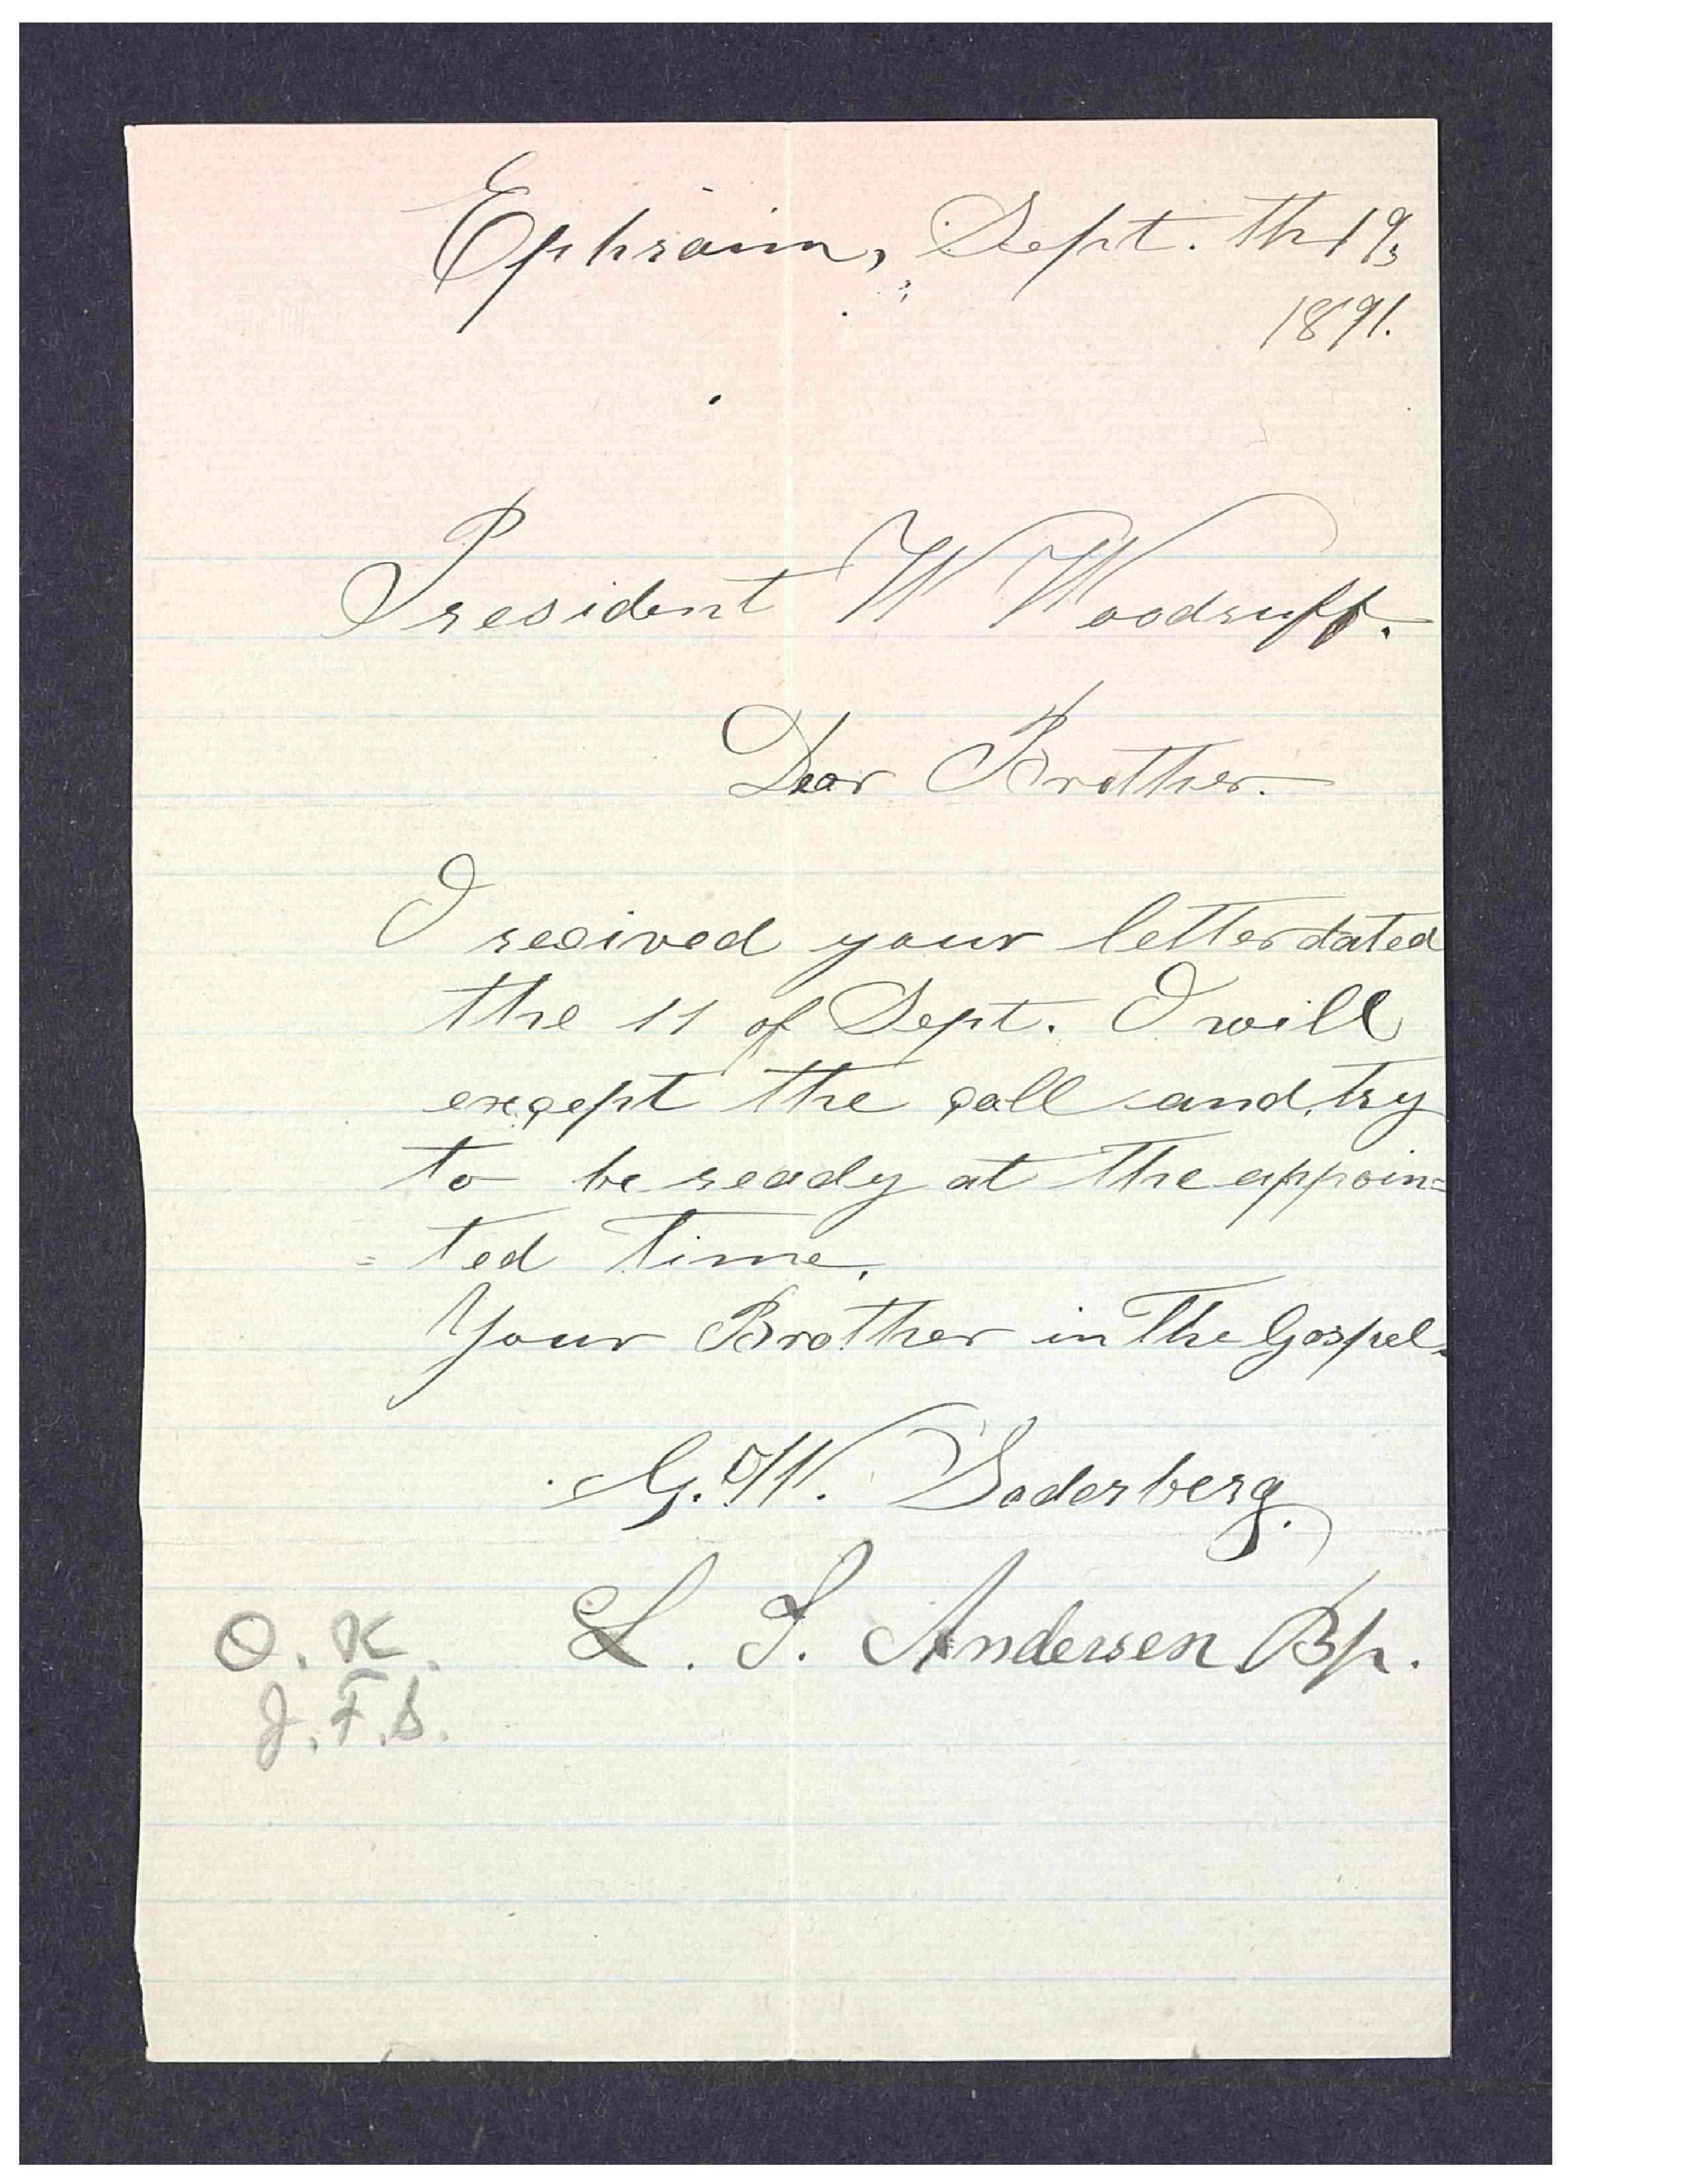 Ephraim, Sept. th 19,
1891.
President W Woodruff.
Dear Brother.
I recived your letter dated
the 11 of Sept. I will
except the call and try
to be ready at the appoin=
=ted time.
Your Brother in The Gospel.
G. W. Soderberg.
L. S. Andersen Bp.
O. K.
J. F. S.